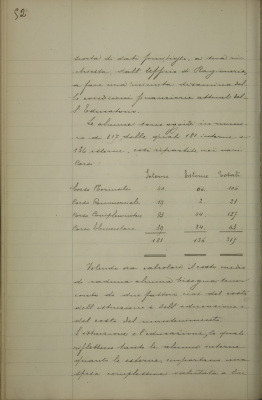 52
scorta di dati forniti, e una in-
chiesta dall'Ufficio di Ragioneria,
e fare una minuta disamina del-
le condizioni finanziarie attuali del-
l'Educatorio.
Le alunne sono oggidì in nume-
ro di 317, delle quali 181 interne e
136 esterne, così ripartite nei vari
Corsi
Interne Esterne Totali
Corso Normale
Corso Commerciale
Corso Complementare 127
Corso Elementare 24
181 136 317
Volendo ora calcolare il costo medio
di cadauna alunna bisogna tener
conto di due fattori cioè del costo
dell'istruzione e dell'educazione e
del costo del mantenimento.
L'istruzione e l'educazione, le quali
riflettono tanto le alunne interne
quanto le esterne, importano una
spesa complessiva valutata a